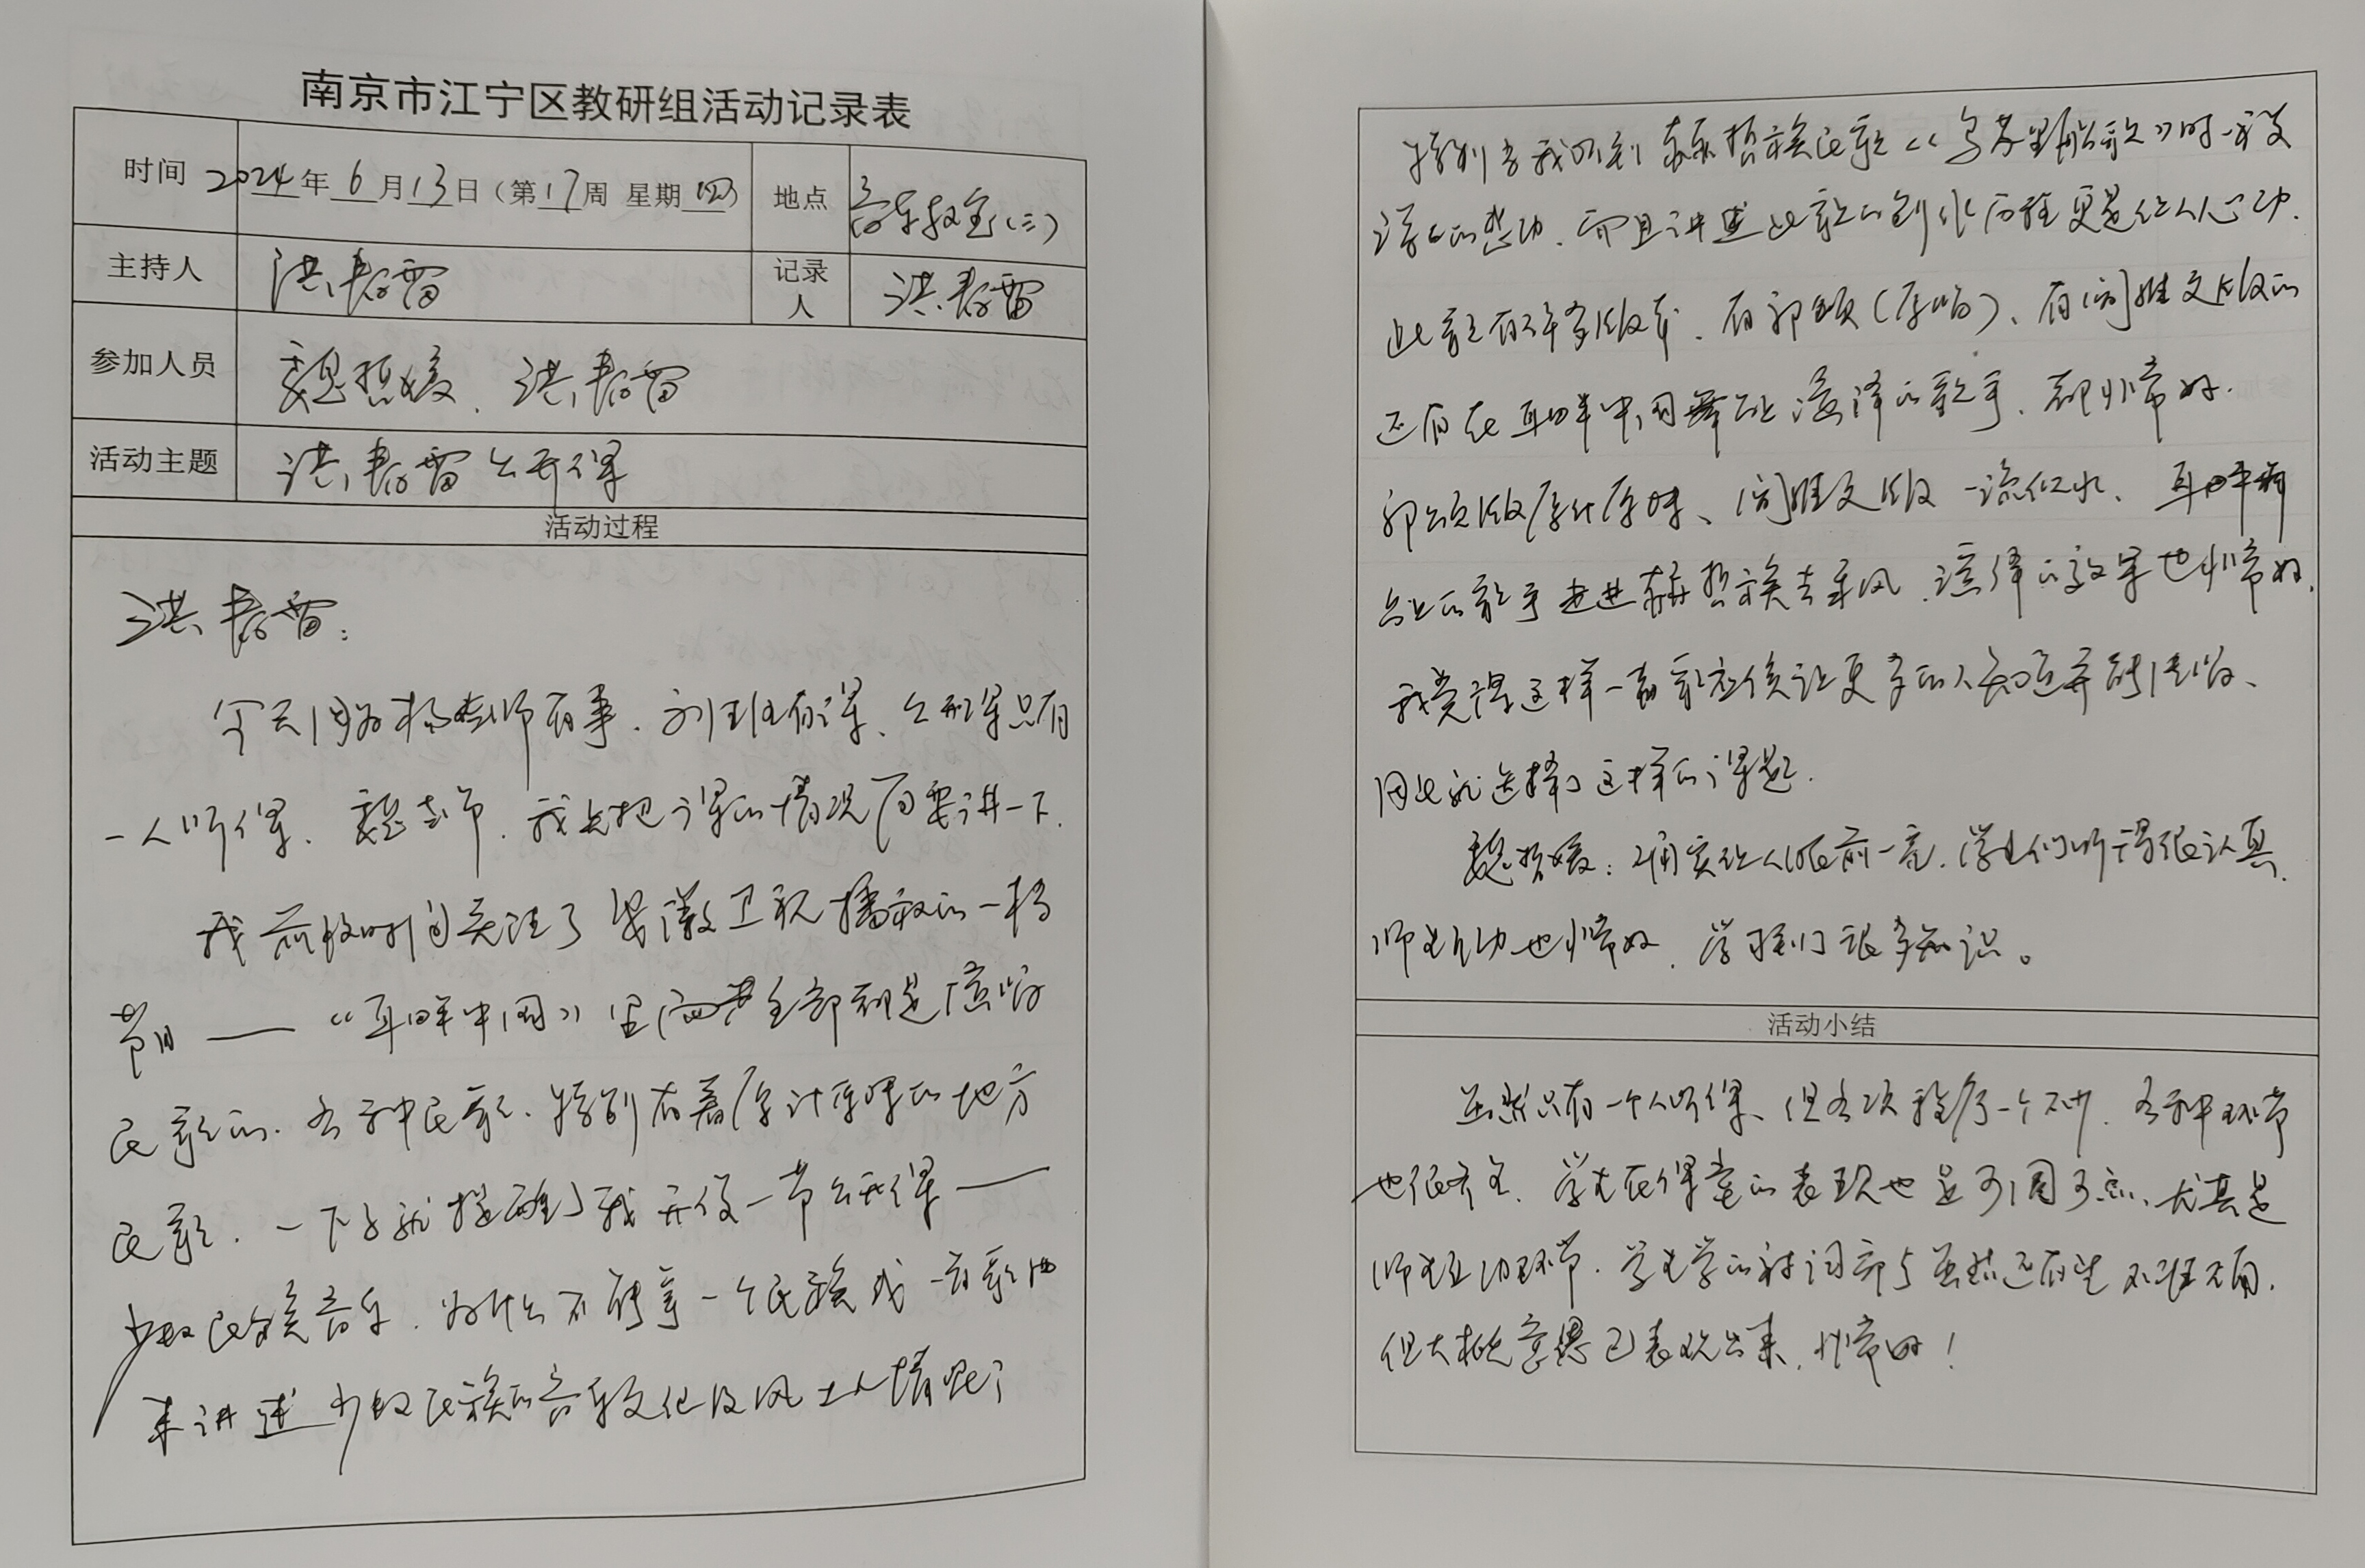 南京市江宁区教研组活动记录表
时间 2024年6月13日（第17周 星期四） 地点 音乐教室(三)
主持人 洪春雷 记录人 洪春雷
参加人员 魏哲媛、洪春雷
活动主题 洪春雷公开课
活动过程
洪春雷：
今天因为杨老师有事、刘班有课、公开课只有
一人听课、魏老师，我先把课的情况简要讲一下.
我前段时间关注了安徽卫视播放的一档
节目——“耳畔中国”里面全部都是演唱
民歌的.各种民歌、特别有着原汁原味的地方
民歌.一下子就提醒了我开设一节公开课——
少数民族音乐.为什么不能拿一个民族或一首歌曲
来讲述少数民族的音乐文化及风土人情呢？
特别当我听到赫哲族民歌《乌苏里船歌》时一种
深深的感动、而且讲述此歌的创作历程更是让人心动.
此歌有许多版本、有郭颂（原唱）、有阎维文版的
还有在耳畔中国舞台演绎的歌手、都非常好.
郭颂版原汁原味、阎维文版一流似水、耳畔
台上的歌手走进赫哲族去采风、演绎的效果也非常好.
我觉得这样一首歌应该让更多的人知道并能传唱、
因此就选择了这样的课题.
魏哲媛：确实让人眼前一亮.学生们听得很认真.
师生互动也非常好，学到了很多知识。
活动小结
虽然只有一个人听课、但各项程序一个不少.各种环节
也很齐全.学生在课堂的表现也是可圈可点、尤其是
师生互动环节.学生学的衬词部分虽然还有些不准不到.
但大概意思已表现出来，非常好！